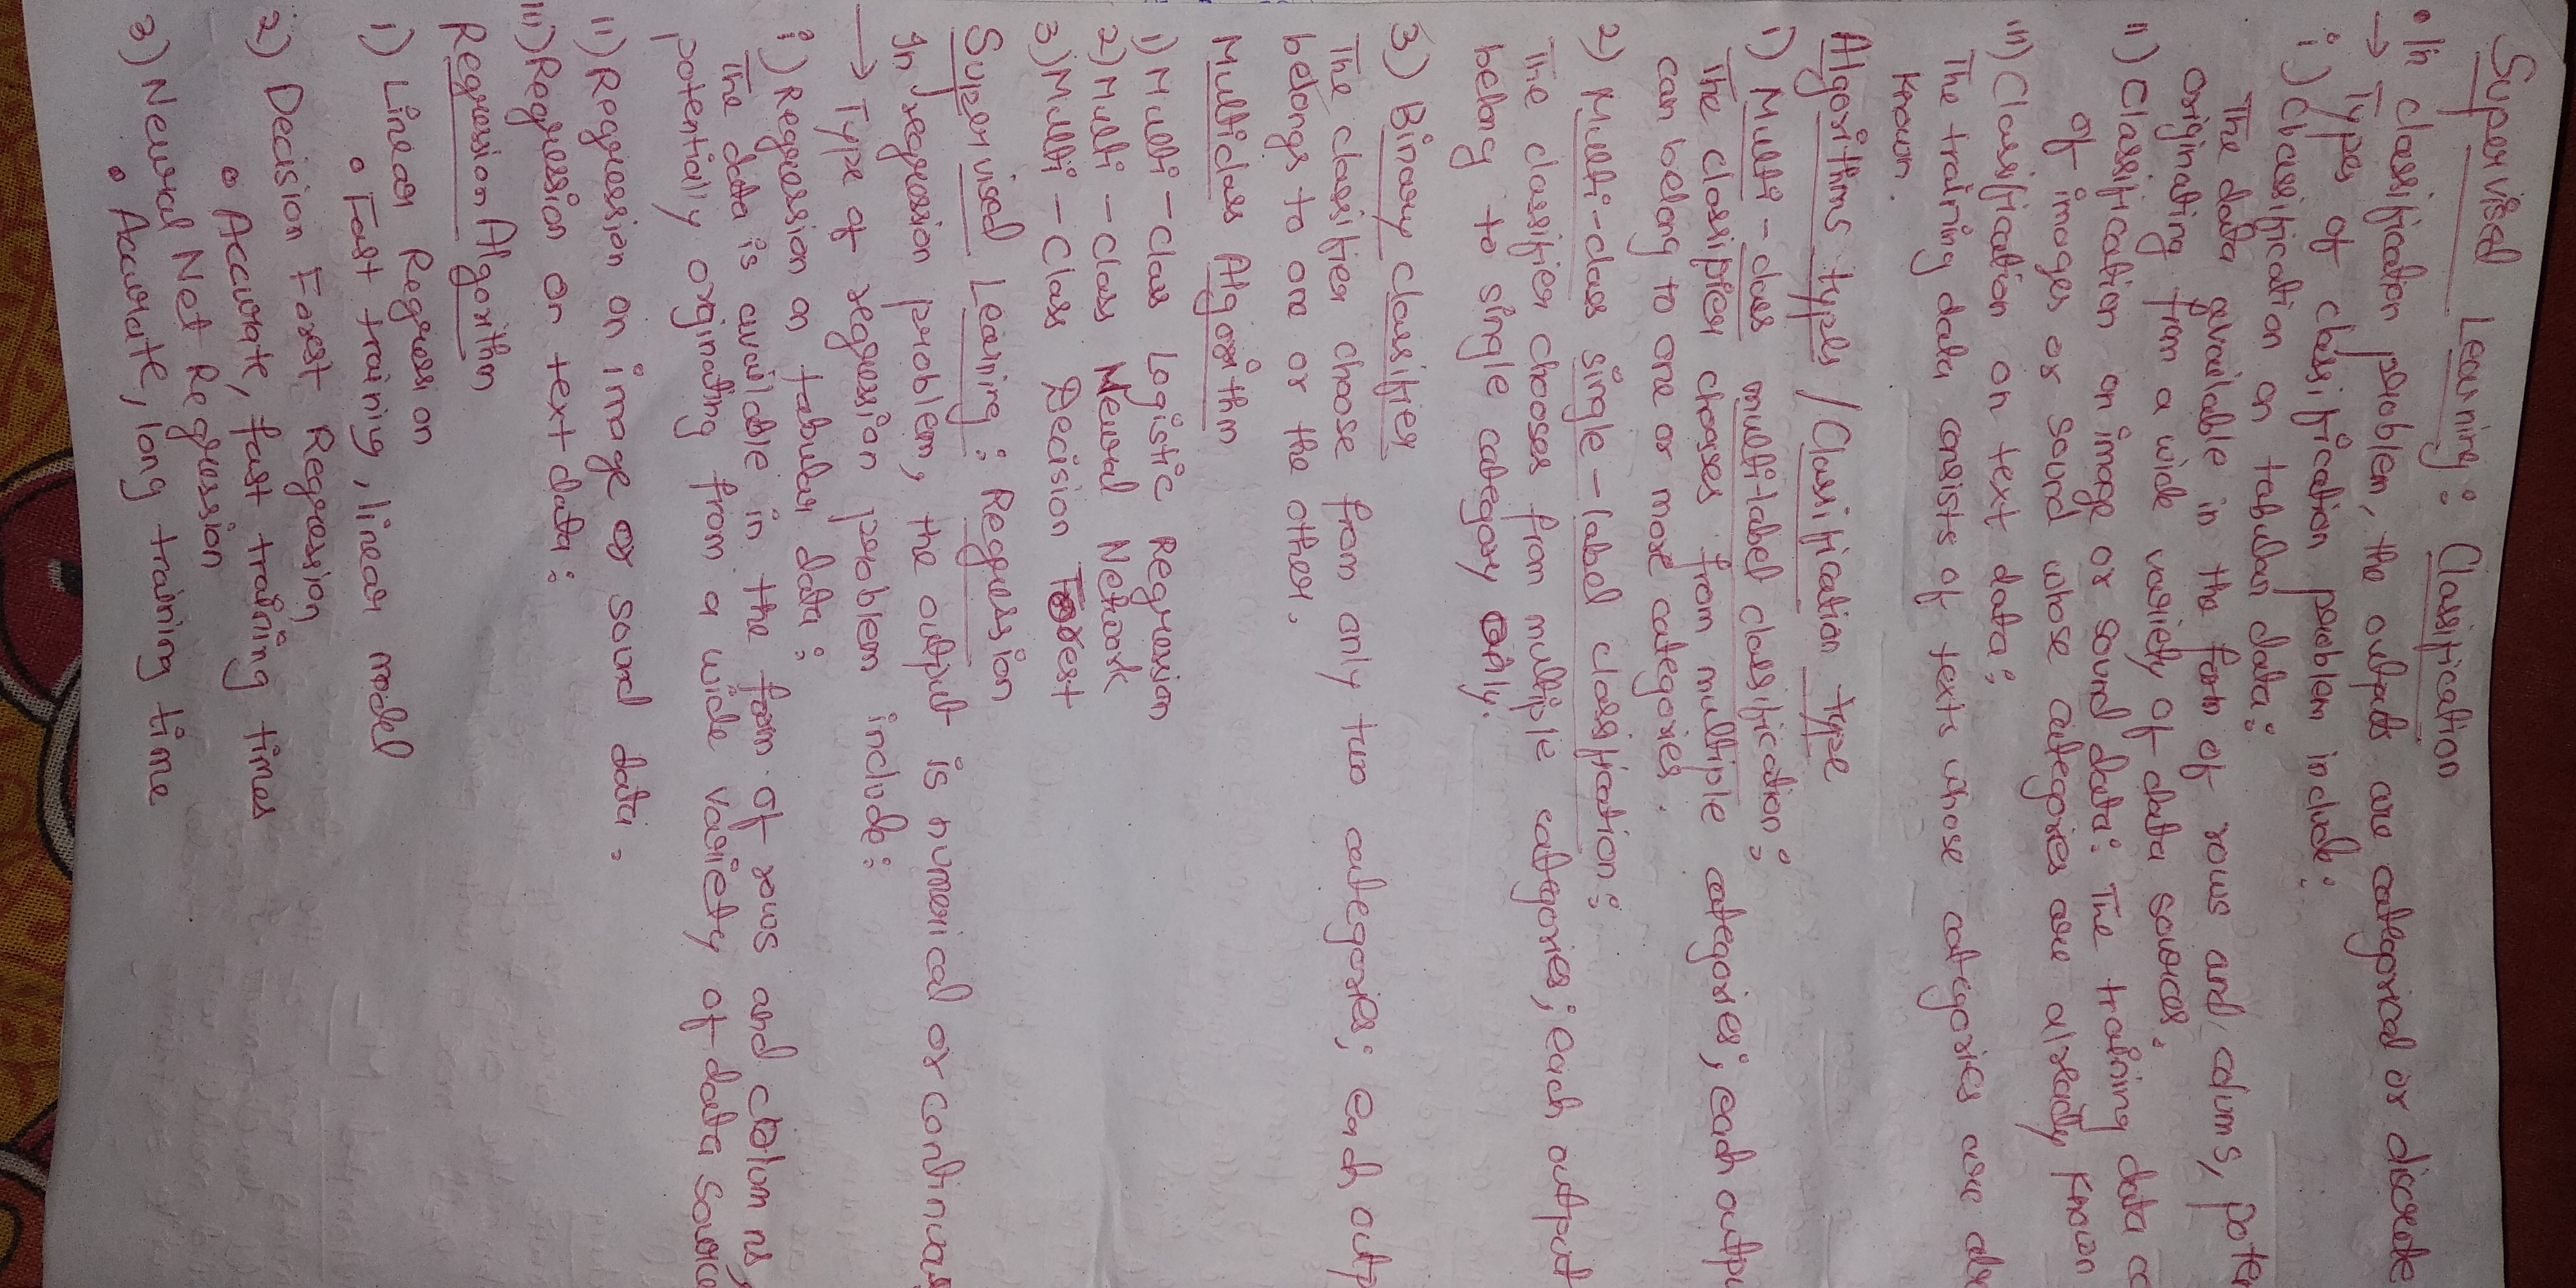 Supervised Learning : Classification
• In classification problem, the outputs are categorical or discrete
→ Types of classification problem include:
i) Classification on tabular data:
The data available in the form of rows and colums, poten
originating from a wide variety of data sources.
ii) Classification on image or sound data: The training data co
of images or sound whose categories are already known
iii) Classification on text data:
The training data consists of texts whose categories are alr
known.
Algorithms types / Classification type
1) Multi-class multi-label classification:
The classifier chooses from multiple categories; each outpu
can belong to one or more categories.
2) Multi-class single-label classification:
The classifier chooses from multiple categories; each output
belong to single category only.
3) Binary classifier
The classifier choose from only two categories; each outp
belongs to one or the other.
Multiclass Algorithm
1) Multi-class Logistic Regression
2) Multi-class Neural Network
3) Multi-Class Decision Forest
Supervised Learning : Regression
In regression problem, the output is numerical or continuous
→ Type of regression problem include:
i) Regression on tabular data:
The data is available in the form of rows and columns,
potentially orginating from a wide variety of data source
ii) Regression on image or sound data.
iii) Regression on text data:
Regression Algorithm
1) Linear Regression
• Fast training, linear model
2) Decision Forest Regression
• Accurate, fast training times
3) Neural Net Regression
• Accurate, long training time